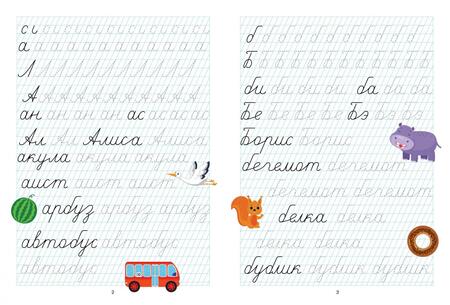 а
А
ан ан ан ас ас ас
Ал Ал Алиса Алиса
акула акула акула
аист аист аист
арбуз арбуз арбуз
автобус автобус
автобус автобус
2
б
Б
би би би ба ба ба
Бе Бе Бе Бэ Бэ
Борис Борис
бегемот бегемот
бегемот бегемот
белка белка
белка белка
бублик бублик бублик
3